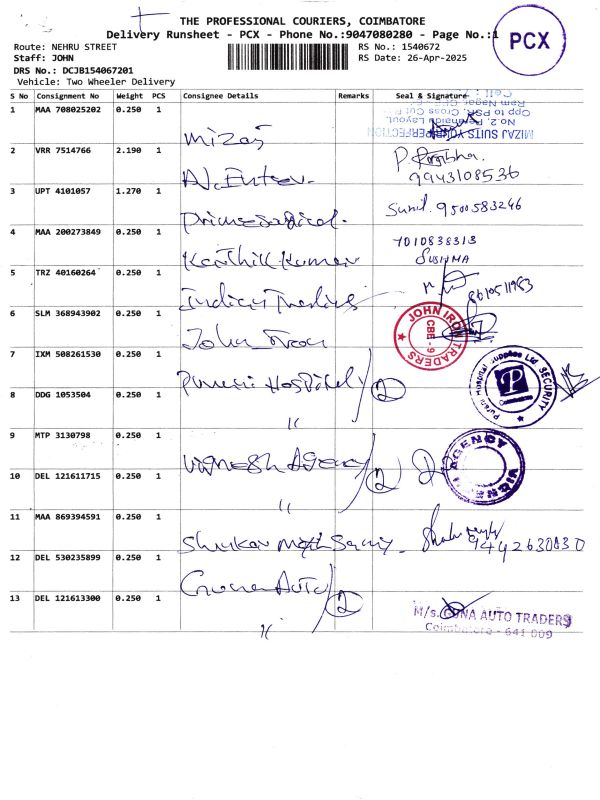 THE PROFESSIONAL COURIERS, COIMBATORE
Delivery Runsheet - PCX - Phone No.:9047080280 - Page No.:1
PCX
Route: NEHRU STREET
RS No.: 1540672
Staff: JOHN
RS Date: 26-Apr-2025
DRS No.: DCJB154067201
Vehicle: Two Wheeler Delivery
S No Consignment No Weight PCS Consignee Details Remarks Seal & Signature
1 MAA 708025202 0.250 1 Mizaj
MIZAJ SUITS YOUR PERFECTION
Opp to PSR, Cross Cut
2 VRR 7514766 2.190 1
9943108536
3 UPT 4101057 1.270 1
Sunil. 9500583246
4 MAA 200273849 0.250 1 Karthik Kumar
7010838313
SUSHMA
5 TRZ 40160264 0.250 1 Indian Trading
8610511953
6 SLM 368943902 0.250 1 John Iron
JOHN IRON TRADERS
CBE - 9
7 IXM 508261530 0.250 1 Puram Hospital 2
Puram Hospital Supplies Ltd
SECURITY
8 DDG 1053504 0.250 1 "
9 MTP 3130798 0.250 1 Vignesh Agency 2
VIGNESH AGENCY
10 DEL 121611715 0.250 1 "
11 MAA 869394591 0.250 1
9442630830
12 DEL 530235899 0.250 1 Guna Auto 2
13 DEL 121613300 0.250 1 "
M/s. GUNA AUTO TRADERS
Coimbatore - 641 009